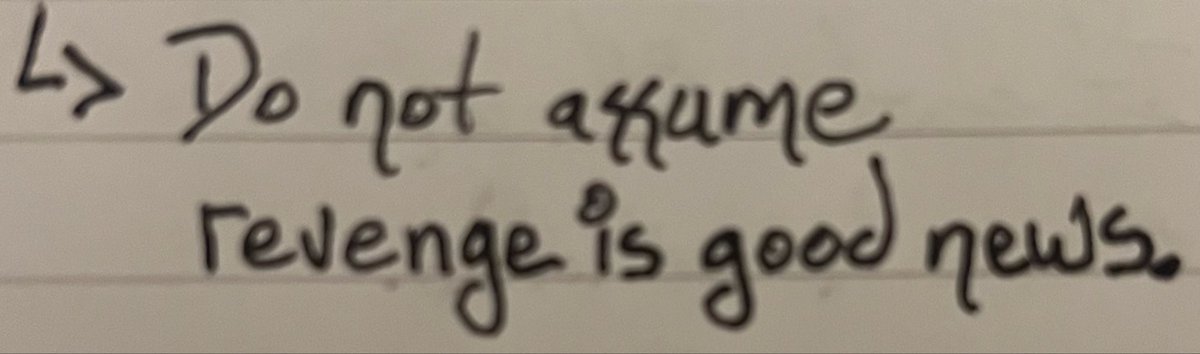 ↳ Do not assume
revenge is good news.